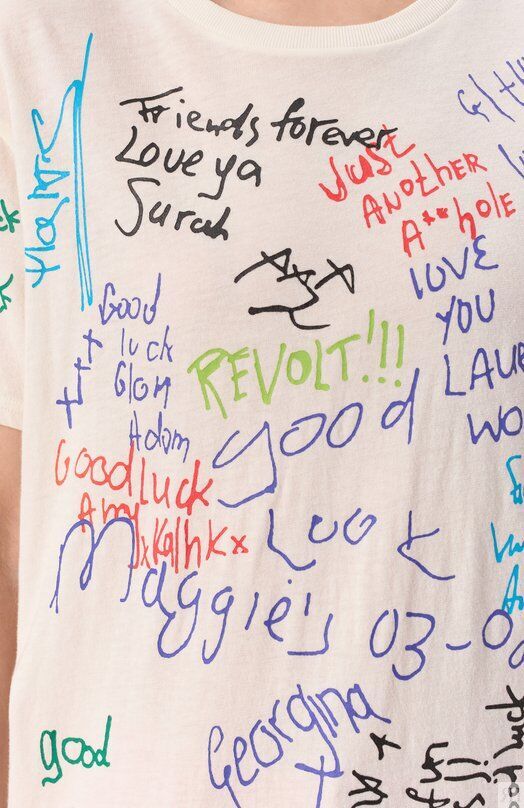 Friends forever
Love ya
Surah
Just
ANOTHER
A**hOLE
LOVE
YOU
LAUR
WO
Good
luck
Glom
Adom
REVOLT!!!
good
Look
Good luck
Amy
xKalhkx
Maggie's 03-0
Georgina
good
fun
luck